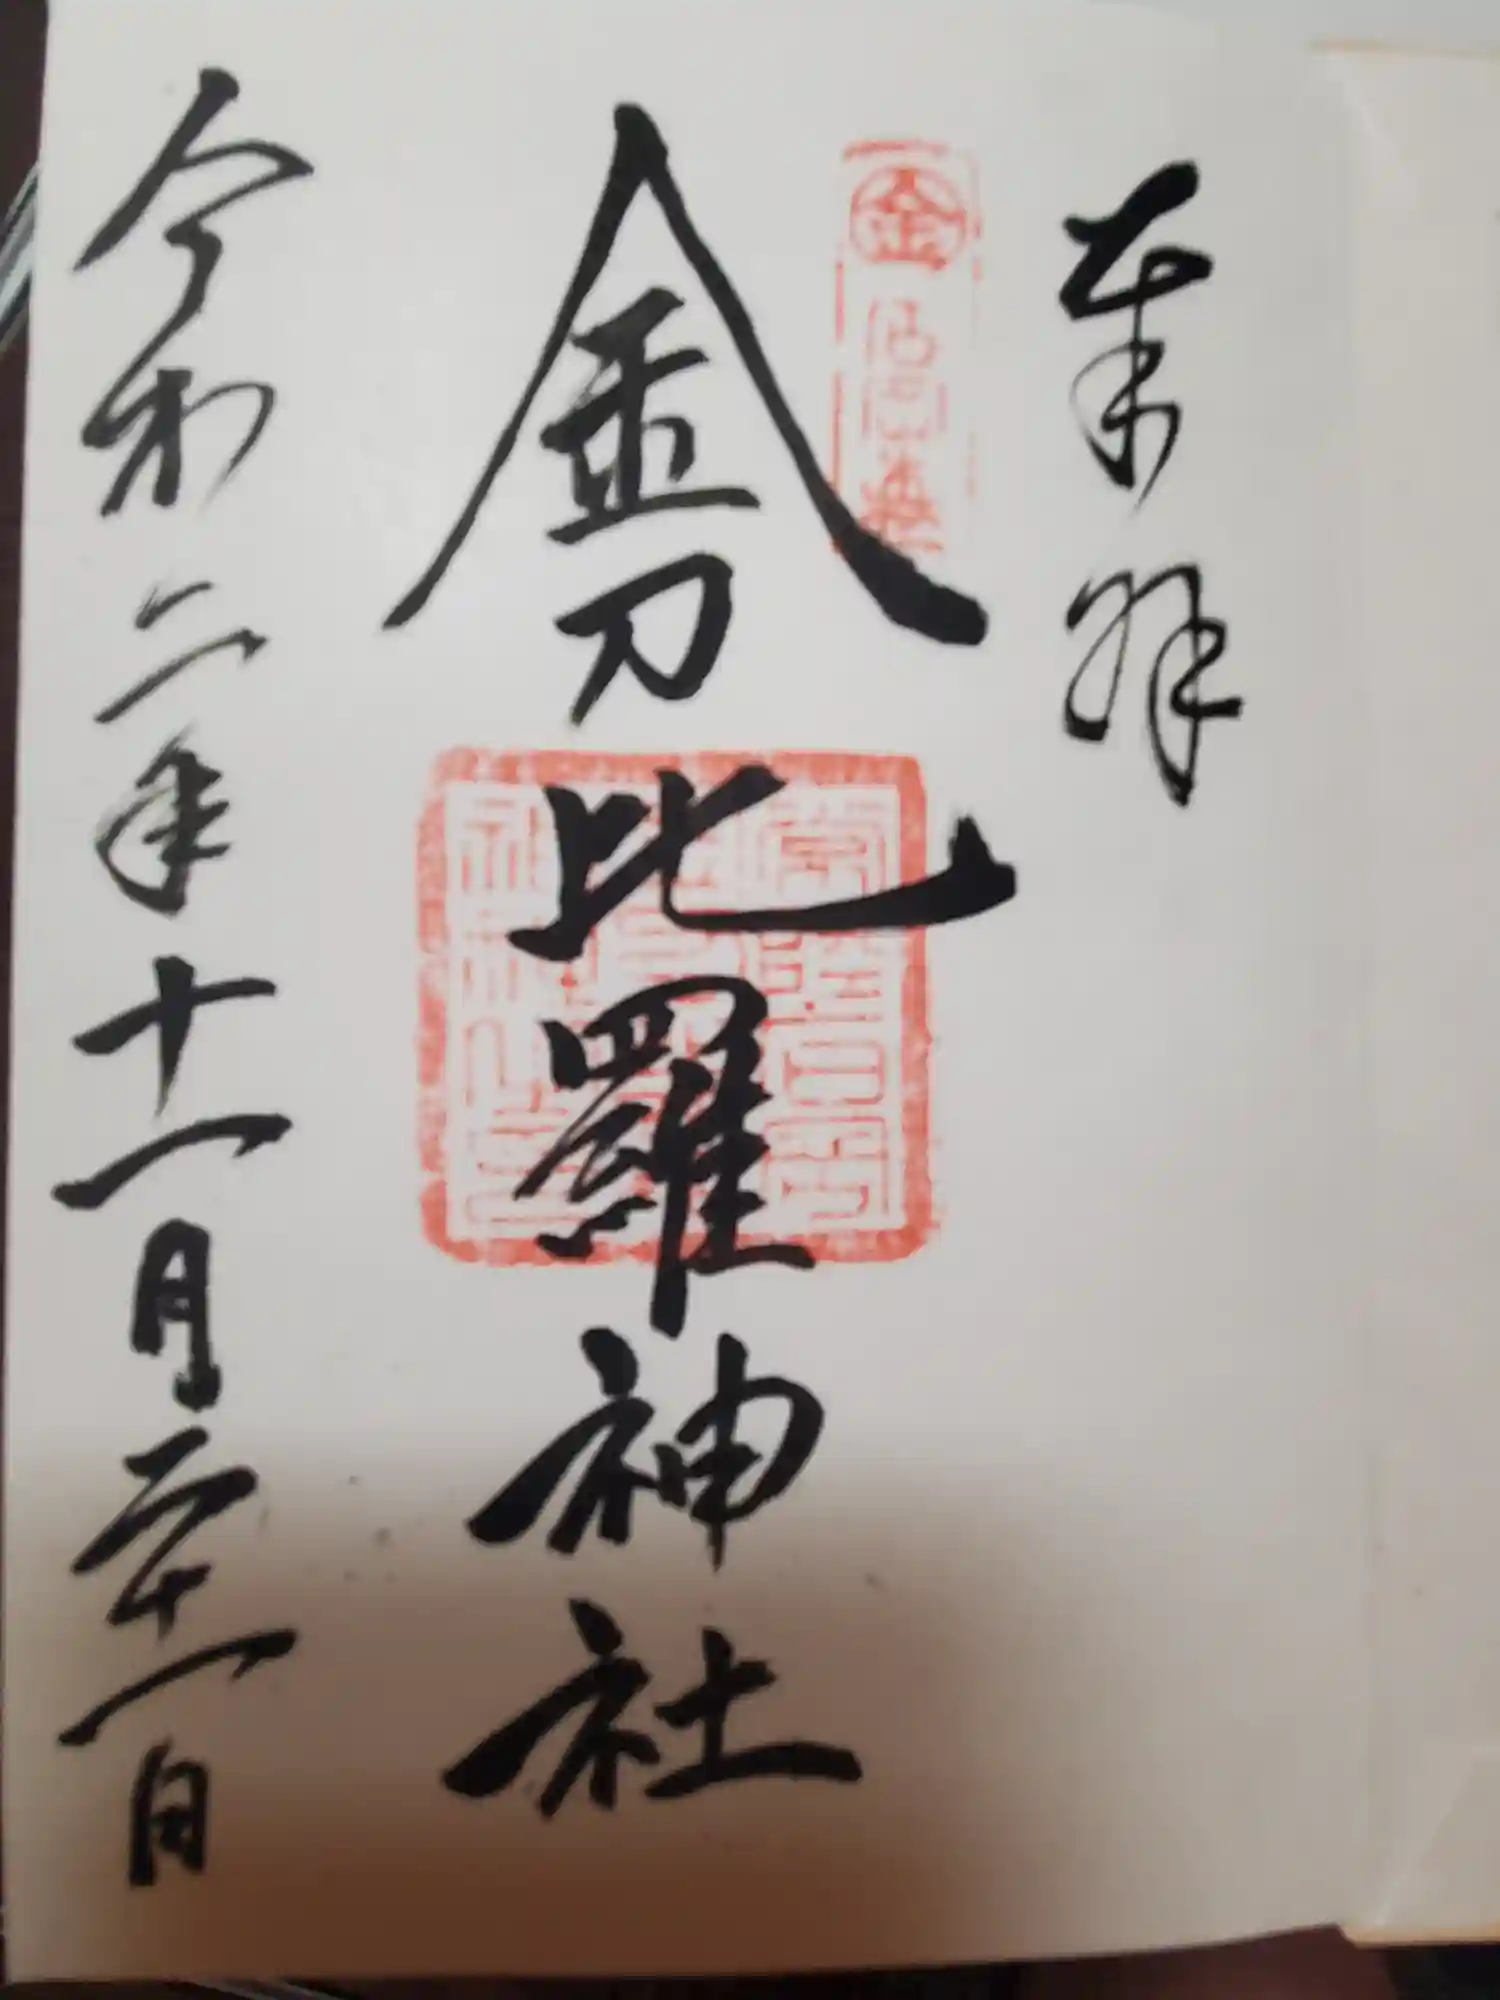 奉拝
金
金刀比羅神社
令和二年十一月二十一日